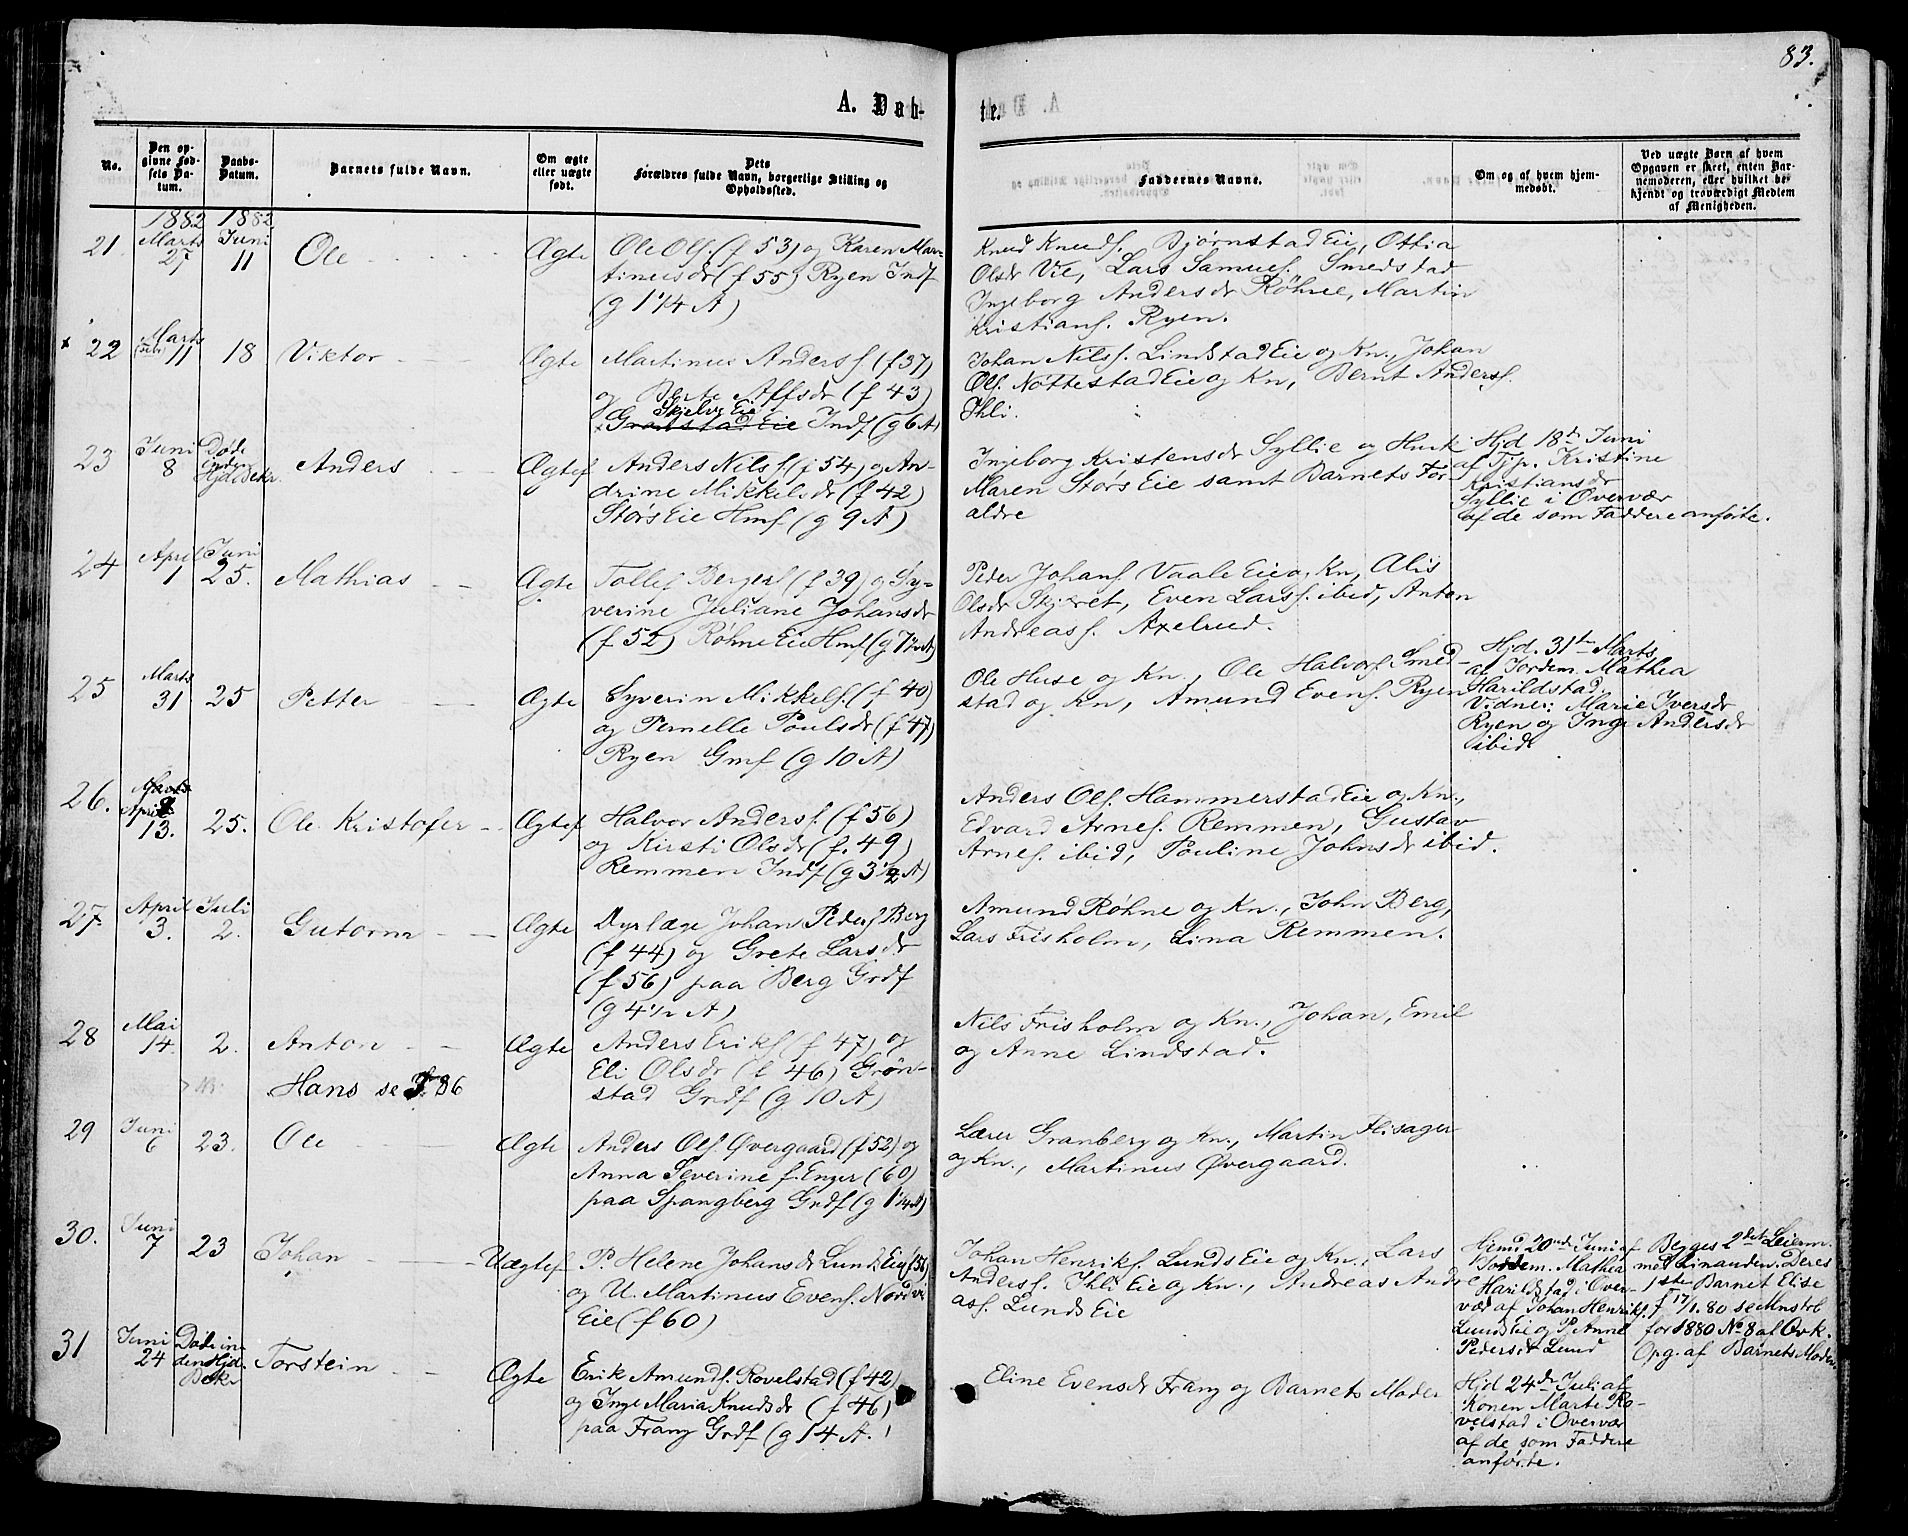 83.
A. Døb-
te.
No.
Den op-
givne Fød-
sels Da-
tum.
Daabs-
Datum.
Barnets fulde Navn.
Om ægte
eller uægte
født.
Dets
Forældres fulde Navn, borgerlige Stilling og
Opholdssted.
Faddernes Navne.
Om og af hvem hjem-
medøbt.
Ved uægte Børn af hvem
Opgaven er skeet, enten Bar-
nemoderen, eller hvilket be-
kjendt og troværdigt Medlem
af Menigheden.
1882 1882
21. Marts 27 Juni 11 Ole Ægte
Ole Ols. (f 53) og Karen Mar-
tinusdr (f 55) Ryen Indf
(g 1 1/4 A)
Knud Knuds. Bjørnstad Eie, Ottia
Olsdr Vie, Lars Samuels. Smedstad
Ingeborg Andersdr Røhne, Martin
Kristians. Ryen.
x 22 Marts 11 18 Viktor Ægte
Martinus Anders. (f 37)
og Berte Affsdr (f 43)
Skjelve Eie
Grønstad Eie Indf (g 6 A)
Johan Nils. Lindstad Eie og Kn., Johan
Ols. Nottestad Eie og Kn, Bernt Anders.
Ihli.
23 Juni 8 Døbt
inden
Hjd Bekr. Anders Ægtef
Anders Nils. (f 54) og An-
drine Mikkelsdr (f 42)
Størs Eie Hmf (g 9 A)
Ingeborg Kristensdr Syllie og Husk
Maren Størs Eie samt Barnets For-
ældre
Hjd 18de Juni
af Tjp. Kristine
Kristiansdr
Syllie i Overvær
af de som Faddere anførte.
24 April 1 Juni 25. Mathias Ægte
Tollef Bergers. (f 39) og Sy-
verine Juliane Johansdr
(f 52) Røhne Eie Hmf (g 7 1/2 A)
Peder Johans. Vaale Eie og Kn, Alis
Olsdr Skjæret, Even Lars. ibid, Anton
Andreas. Axelrud.
25 Marts 31 25 Petter Ægte
Syverin Mikkels. (f 40)
og Pernelle Poulsdr (f 47)
Ryen Gmf (g 10 A)
Ole Huse og Kn., Ole Halvors. Smed-
stad og Kn, Amund Evens. Ryen
Hjd. 31te Marts
af Jordem. Mathea
Harildstad.
Vidner: Marie Iversdr
Ryen og Inge Andersdr
ibid
26. Marts
April
13. 25. Ole Kristofer Ægtef
Halvor Anders. (f 56)
og Kirsti Olsdr (f. 49)
Remmen Indf (g 3 1/2 A)
Anders Ols. Hammerstad Eie og Kn.,
Edvard Arnes. Remmen, Gustav
Arnes. ibid, Pouline Johnsdr ibid.
27. April 3. Juli 2. Gutorm Ægte
Dyrlæge Johan Peders. Berg
(f 44) og Grete Larsdr
(f. 56) paa Berg Grdf
(g 4 1/2 A)
Amund Røhne og Kn., John Berg,
Lars Frisholm, Lina Remmen.
28 Mai 14. 2. Anton Ægte
Anders Eriks. (f 47) og
Eli Olsdr (f 46) Grøn-
stad Grdf (g 10 A)
Nils Frisholm og Kn., Johan, Emil
og Anne Lindstad.
Hans se F. 86
29 Juni 6 23. Ole Ægte
Anders Ols. Øvergaard (f 52) og
Anna Severine f. Enger (60)
paa Spangberg Grdf (g 1 1/4 A)
Lærer Granberg og Kn., Martin Flisager
og Kn., Martinus Øvergaard.
30. Juni 7 23 Johan Uægtef
P. Helene Johansdr Lunds Eie (f 58)
og U. Martinus Evens. Nordvi
Eie (f 60)
Johan Henriks. Lunds Eie og Kn., Lars
Anders. Ihli Eie og Kn., Andreas Andre
ass. Lunds Eie
Hjmd 20nde Juni af
Jordem. Mathea
Harildstad i Over-
vær af Johan Henriks.
Lunds Eie og P. Anne
Pedersdr Lund
Begges 2det Leierm.
med hinanden. Deres
1ste Barnet Elise
f 17/1. 80 se Mnstbl
for 1880 No 8 af Ovk.
Opg. af Barnets Moder
31 Juni 24 Døbt in-
den Hjd.
Bekr Torstein Ægte
Erik Amunds. Rovelstad (f 42)
og Inge Maria Knudsdr (f 46)
paa Frang Grdf (g 14 A.)
Eline Evensdr Frang og Barnets Moder
Hjd 24de Juli af
Konen Marte Ro-
velstad i Overvær
af de som Faddere
anførte.